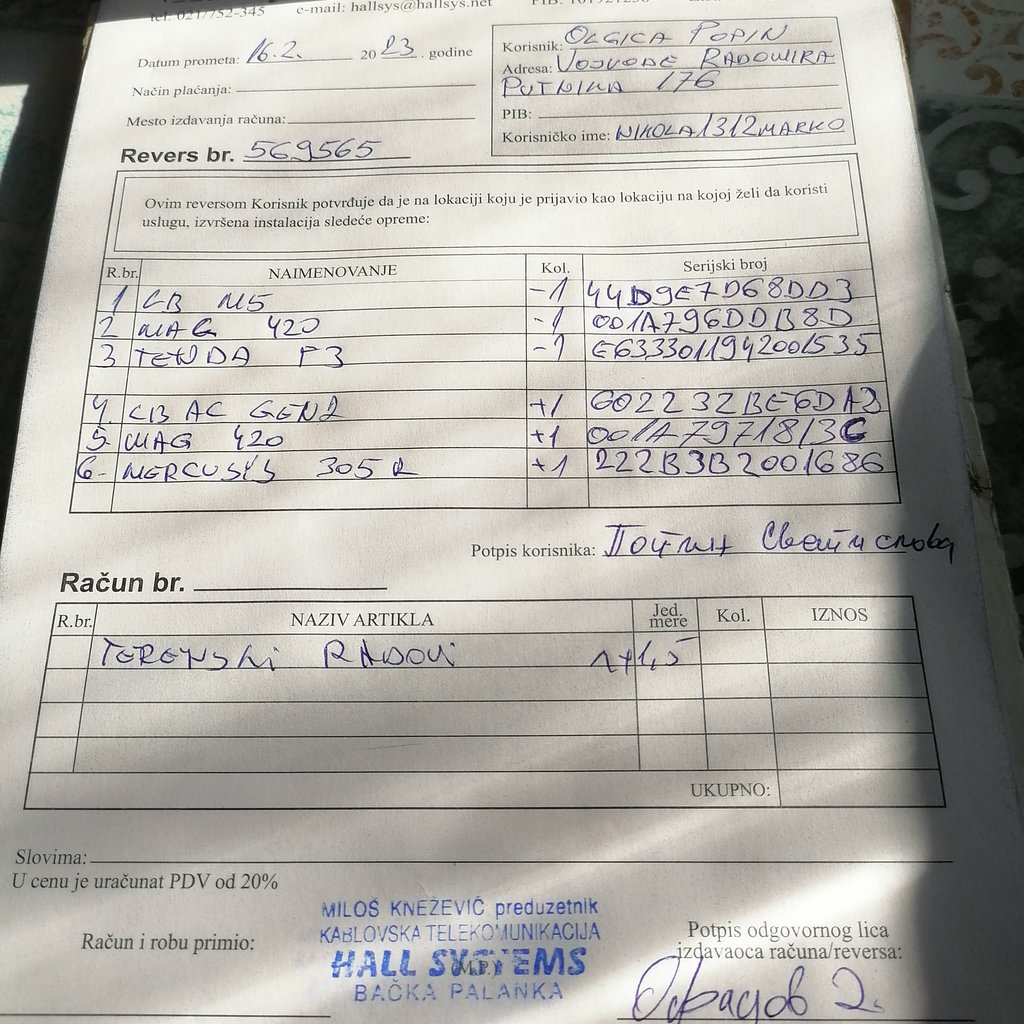 tel. 021/752-345 e-mail: hallsys@hallsys.net
Datum prometa: 16.2. 2023. godine
Način plaćanja:
Mesto izdavanja računa:
Revers br. 569565
Korisnik: OLGICA POPIN
Adresa: VOJVODE RADOMIRA
PUTNIKA 176
PIB:
Korisničko ime: NIKOLA1312MARKO
Ovim reversom Korisnik potvrđuje da je na lokaciji koju je prijavio kao lokaciju na kojoj želi da koristi
uslugu, izvršena instalacija sledeće opreme:
R.br. NAIMENOVANJE Kol. Serijski broj
1 LB M5 -1 44D9E7D68DD3
2 MAG 420 -1 001A796DDB8D
3 TENDA F3 -1 E6333011942001535
4. LB AC GEN2 +1 602232BE6DA3
5. MAG 420 +1 001A7971813C
6- MERCUSYS 305R +1 222B3B2001686
Potpis korisnika: Попин
Račun br.
R.br. NAZIV ARTIKLA Jed. mere Kol. IZNOS
TERENSKI RADOVI 1+1,5
UKUPNO:
Slovima:
U cenu je uračunat PDV od 20%
MILOŠ KNEŽEVIĆ preduzetnik
KABLOVSKA TELEKOMUNIKACIJA
HALL SYSTEMS
(M.P.)
BAČKA PALANKA
Račun i robu primio:
Potpis odgovornog lica
izdavaoca računa/reversa: